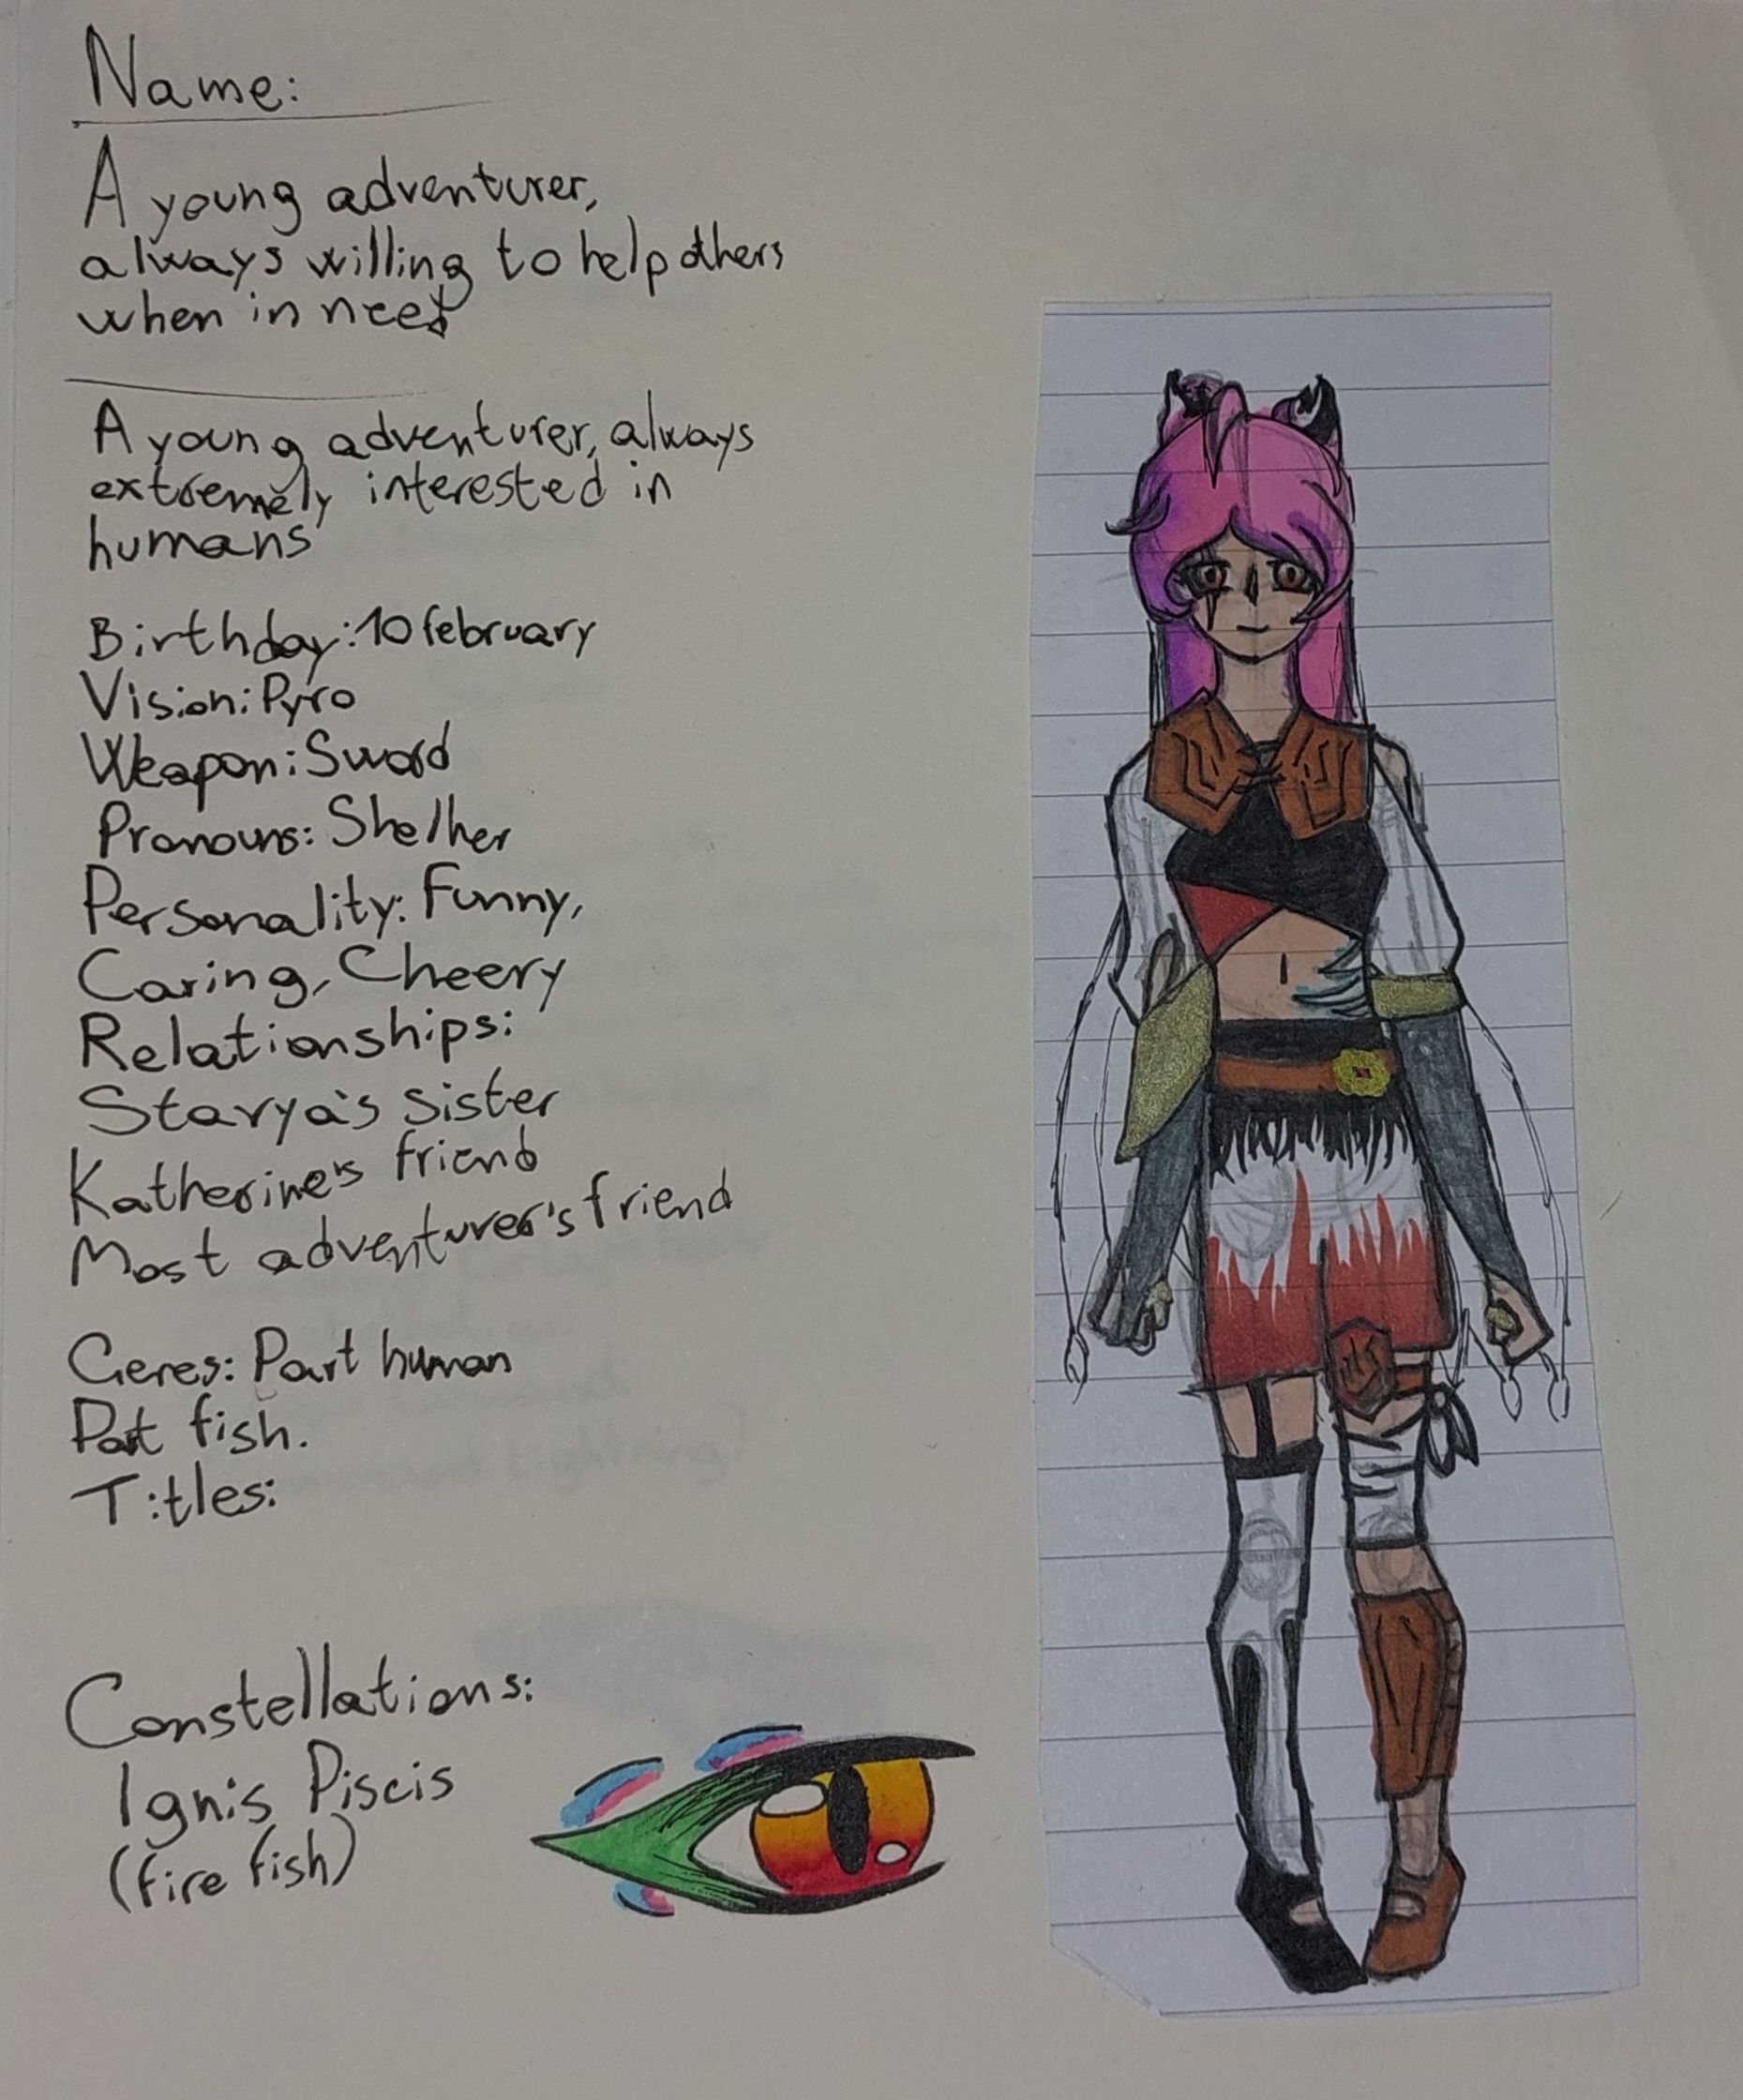 Name:
A young adventurer,
always willing to help others
when in need
A young adventurer, always
extremely interested in
humans
Birthday: 10 february
Vision: Pyro
Weapon: Sword
Pronouns: She/her
Personality: Funny,
Caring, Cheery
Relationships:
Starya's sister
Katherine's friend
Most adventurer's friend
Geres: Part human
Part fish.
Titles:
Constellations:
Ignis Piscis
(fire fish)